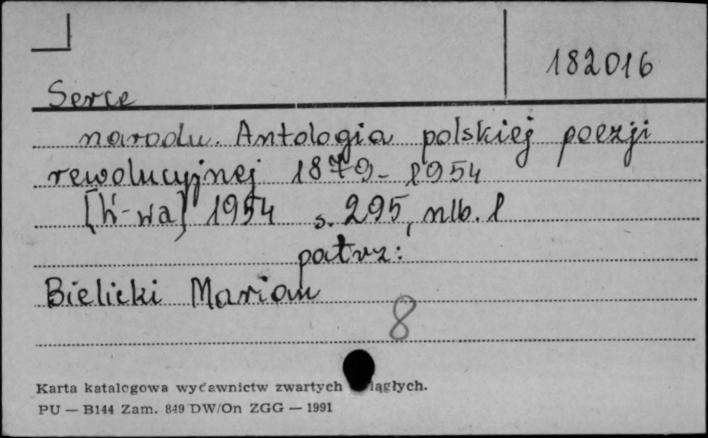 182016
Serce
narodu. Antologia polskiej poezji
rewolucyjnej 1879-1954
[W-wa] 1954 s. 295, nlb. 1
patrz:
Bielicki Marian
8
Karta katalogowa wydawnictw zwartych ciągłych.
PU — B144 Zam. 849 DW/On ZGG — 1991